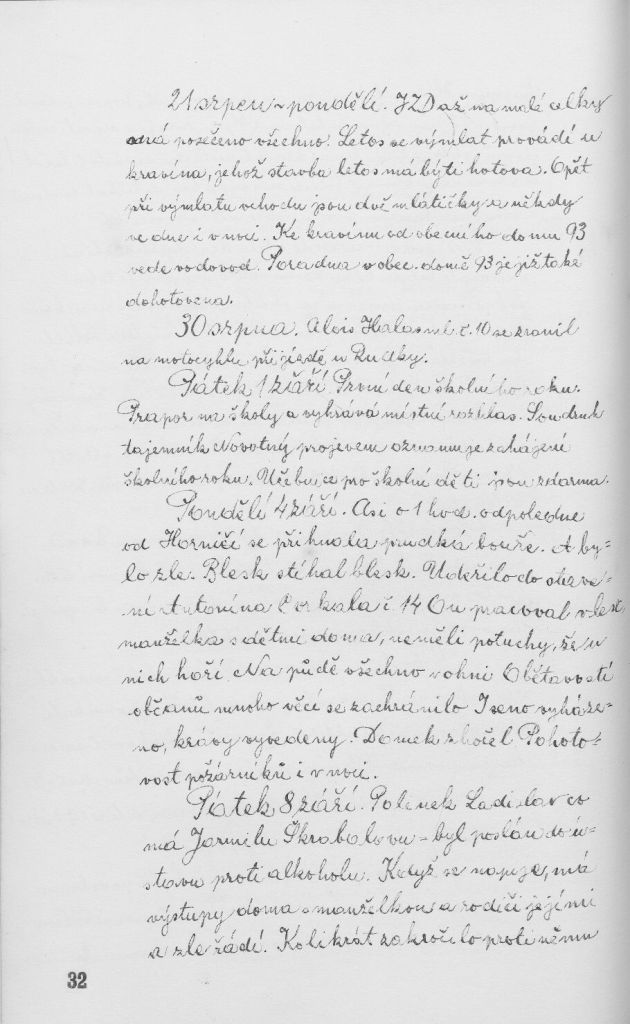 21 srpen - pondělí. JZD až na malé celky
má posečeno všechno. Letos se výmlat provádí u
kravína, jehož stavba letos má býti hotova. Opět
při výmlatu v chodu jsou dvě mlátičky a někdy
ve dne i v noci. Ke kravínu od obecního domu 93
vede vodovod. Poradna v obec. domě 93 je již také
dohotovena.
30 srpna. Alois Halas ml. č. 10 se zranil
na motocyklu při jízdě u Rudky.
Pátek 1 září. První den školního roku.
Prapor na školy a vyhrává místní rozhlas. Soudruh
tajemník Novotný projevem oznamuje zahájení
školního roku. Učebnice pro školní děti jsou zdarma.
Pondělí 4 září. Asi o 1 hod. odpoledne
od Horničí se přihnala prudká bouře. A by-
lo zle. Blesk stíhal blesk. Udeřilo do stave-
ní Antonína č. 14 On pracoval v lese
manželka s dětmi doma, neměli potuchy, že u
nich hoří. Na půdě všechno v ohni Obětavostí
občanů mnoho věcí se zachránilo Iseno vyháze-
no, krávy vyvedeny. Domek shořel Pohoto-
vost požárníků i v noci.
Pátek 8 září. Polínek Ladislav co
má Jarmilu Škrabalovu - byl poslán do ú-
stavu proti alkoholu. Když se napije, má
výstupy doma s manželkou a rodiči jejími
a zle řádí. Kolikrát zakročilo proti němu
32